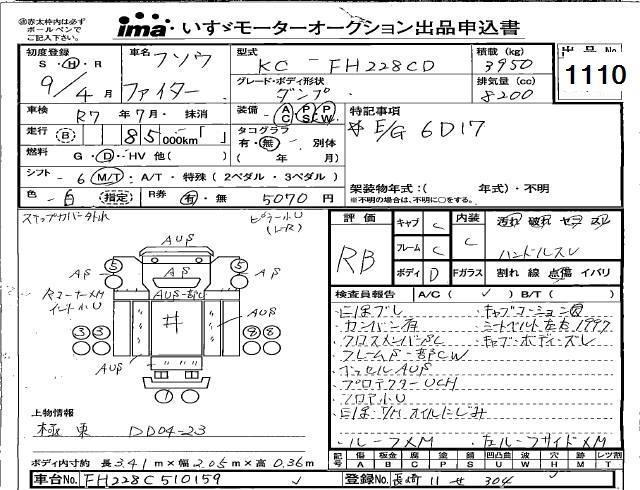 ㊟赤太枠内は必ずボールペンでご記入下さい。
ima いすゞモーターオークション出品申込書
初度登録 S・H・R 9/4月
車名 フソウ ファイター
型式 KC-FH228CD
グレード・ボディ形状 ダンプ
積載(kg) 3950
排気量(cc) 8200
出品No. 1110
車検 R7年7月・抹消
装備 AC PS PW
特記事項
☆E/G 6D17
走行 B 85,000km「 」
タコグラフ 有・無・別体 ( 年 月)
燃料 G・D・HV 他( )
シフト -6 M/T・A/T・特殊(2ペダル・3ペダル)
架装物年式:( 年式)・不明
※不明の場合は、不明に○をする。
色 -白 指定
R券 有・無 5070円
評価 RB
キャブ C
フレーム C
ボディ D
内装 C
汚れ 破れ セヨ スレ
ハンドルスレ
Fガラス 割れ 線 点傷 イバリ
検査員報告 A/C( ✓ ) B/T( )
カンバン有
シートベルト左右1997
クロスメンバペC
キャブ・ボディ・ズレ
フレーム一部CW
ベッセルAUS
プロテクターUCH
フロア小U
T/Mオイルにじみ
ルーフXM
左ルーフサイドXM
AUS
AS
AUS一部C
上物情報
極東 DD04-23
ボディ内寸約 長3.41m×幅2.05m×高0.36m
記号 傷A 板金B 腐C 塗P 錆S 凹凸曲U 波W 穴H 跡M 汚T レツ記
車台No. FH228C510159
登録No. 長崎 11 せ 304